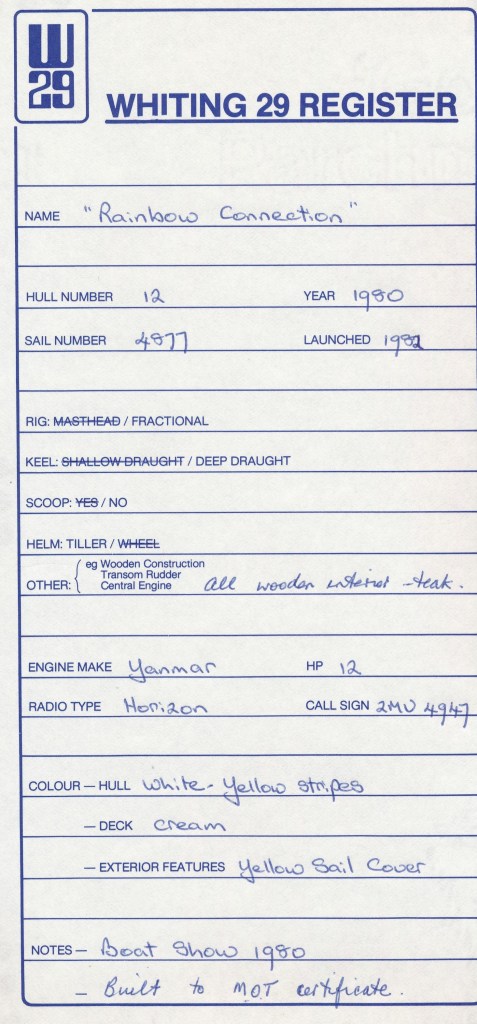 W
29
WHITING 29 REGISTER
NAME "Rainbow Connection"
HULL NUMBER 12 YEAR 1980
SAIL NUMBER 4877 LAUNCHED 1982
RIG: MASTHEAD / FRACTIONAL
KEEL: SHALLOW DRAUGHT / DEEP DRAUGHT
SCOOP: YES / NO
HELM: TILLER / WHEEL
OTHER: eg Wooden Construction
Transom Rudder
Central Engine All wooden interior - teak.
ENGINE MAKE Yanmar HP 12
RADIO TYPE Horizon CALL SIGN 2MU 4947
COLOUR – HULL White - Yellow stripes
– DECK Cream
– EXTERIOR FEATURES Yellow Sail Cover
NOTES – Boat Show 1980
- Built to MOT certificate.